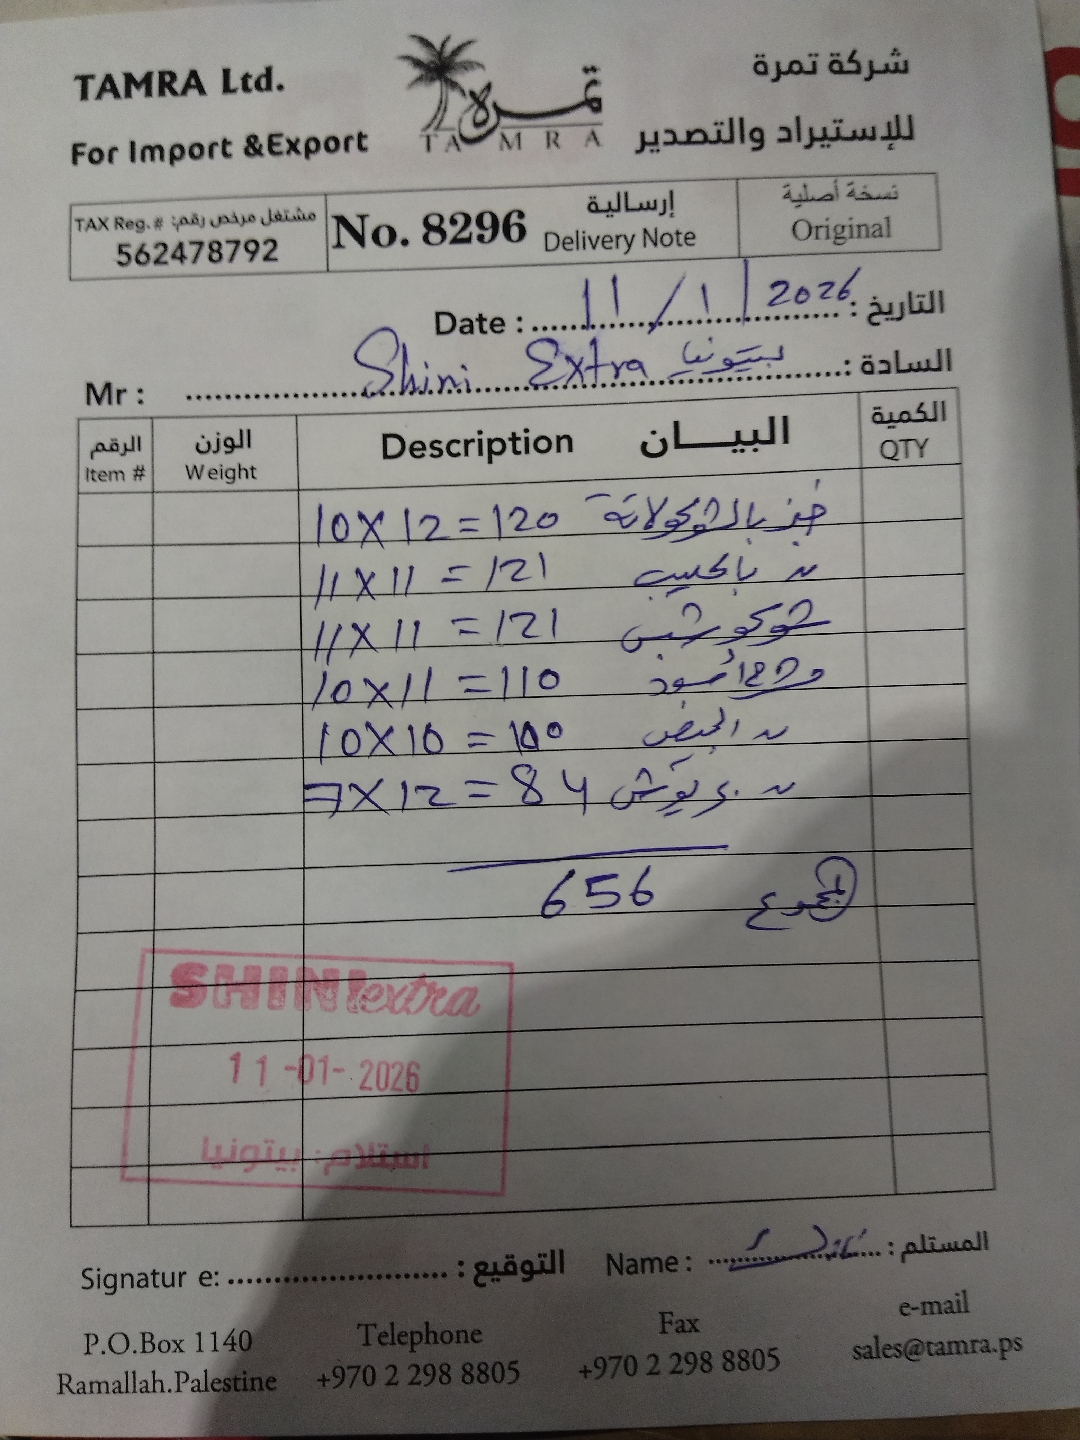 TAMRA Ltd.
For Import &Export
تمرة
TAMRA
شركة تمرة
للإستيراد والتصدير
TAX Reg.# مشتغل مرخص رقم:
562478792
No. 8296
إرسالية
Delivery Note
نسخة أصلية
Original
Date : 11/1/2026 التاريخ :
Mr : Shini Extra بيتونيا السادة :
الرقم الوزن Description البيـــان الكمية
Item # Weight QTY
10 X 12 = 120 بالشوكولاتة
11 X 11 = 121 بالحليب
11 X 11 = 121 شوكو شبس
10 X 11 = 110
10 X 10 = 100
7 X 12 = 84
656 المجموع
SHINI extra
11-01-2026
استلام: بيتونيا
Signatur e: التوقيع : Name : المستلم :
P.O.Box 1140
Ramallah.Palestine
Telephone
+970 2 298 8805
Fax
+970 2 298 8805
e-mail
sales@tamra.ps